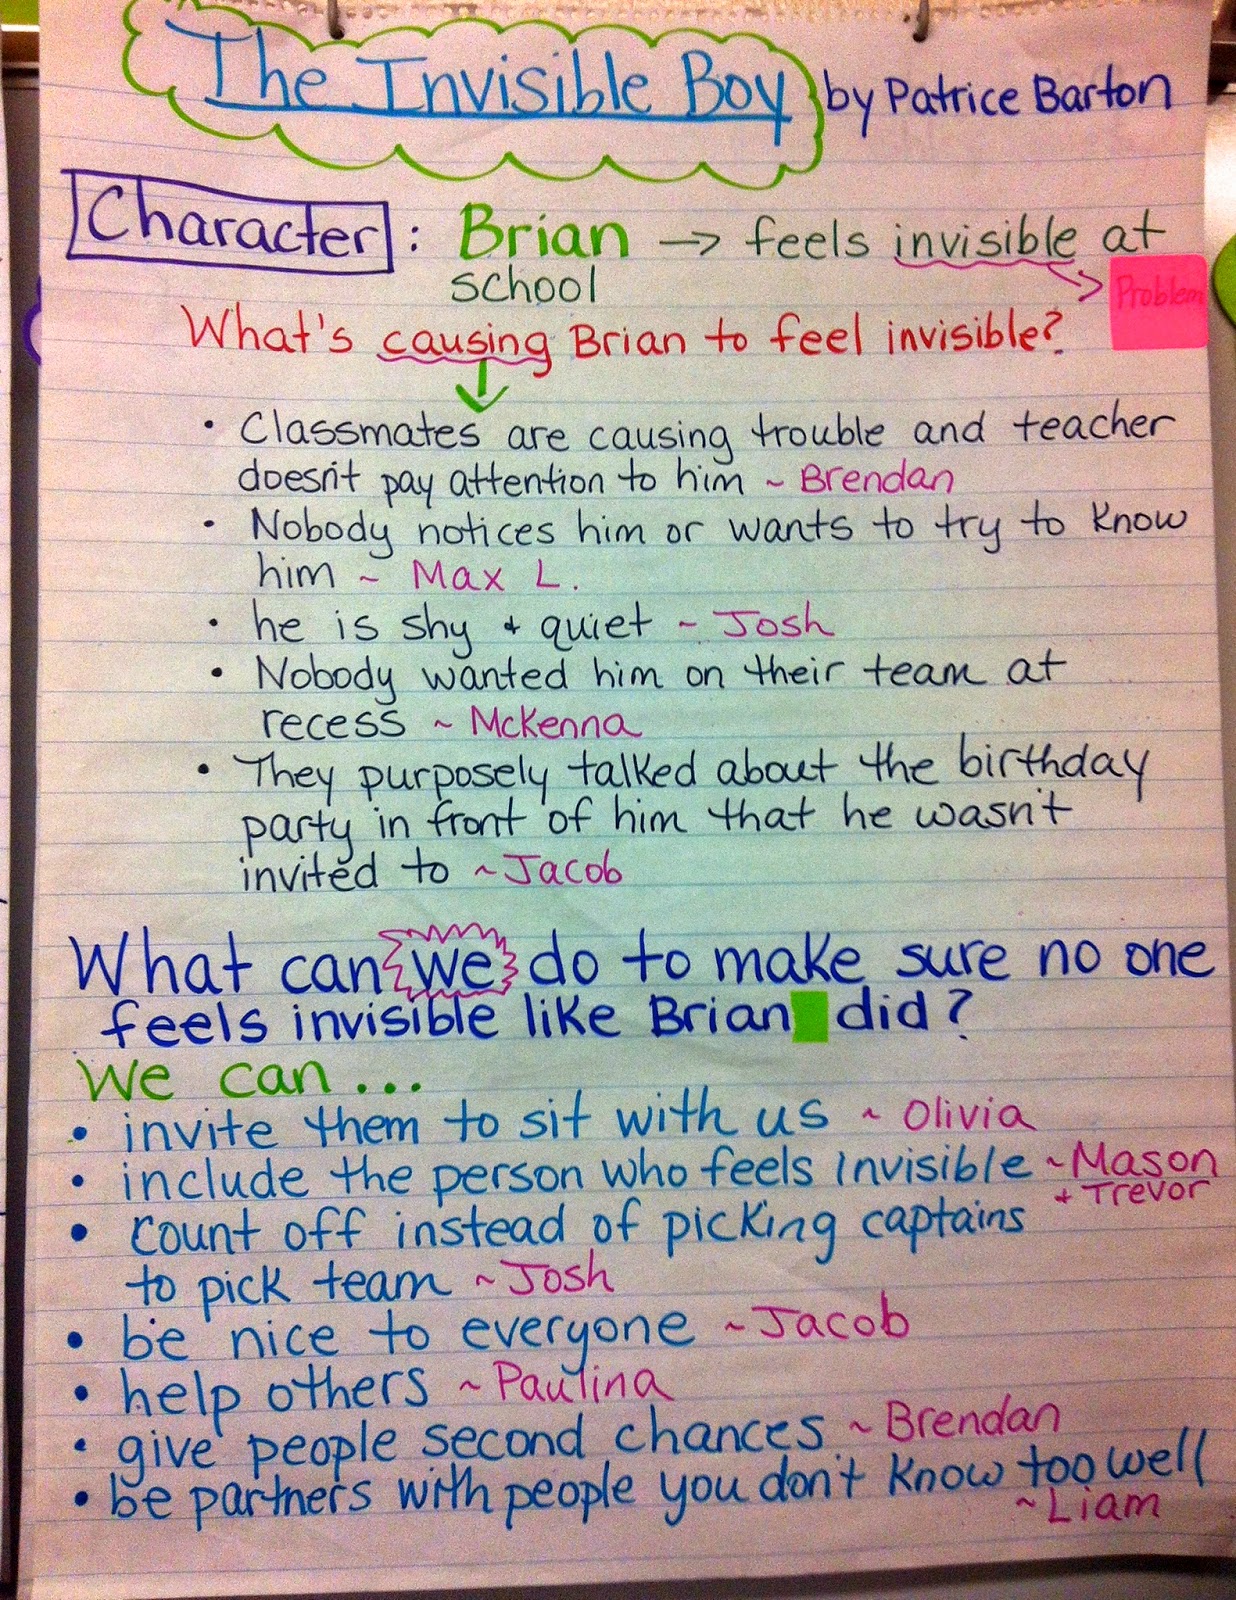 The Invisible Boy by Patrice Barton
Character : Brian → feels invisible at
school
Problem
What's causing Brian to feel invisible?
• Classmates are causing trouble and teacher
doesn't pay attention to him ~ Brendan
• Nobody notices him or wants to try to know
him ~ Max L.
• he is shy + quiet ~ Josh
• Nobody wanted him on their team at
recess ~ McKenna
• They purposely talked about the birthday
party in front of him that he wasn't
invited to ~Jacob
What can we do to make sure no one
feels invisible like Brian did?
We can...
• invite them to sit with us ~ Olivia
• include the person who feels invisible ~Mason
+ Trevor
• count off instead of picking captains
to pick team ~Josh
• be nice to everyone ~Jacob
• help others ~Paulina
• give people second chances ~Brendan
• be partners with people you don't know too well
~Liam